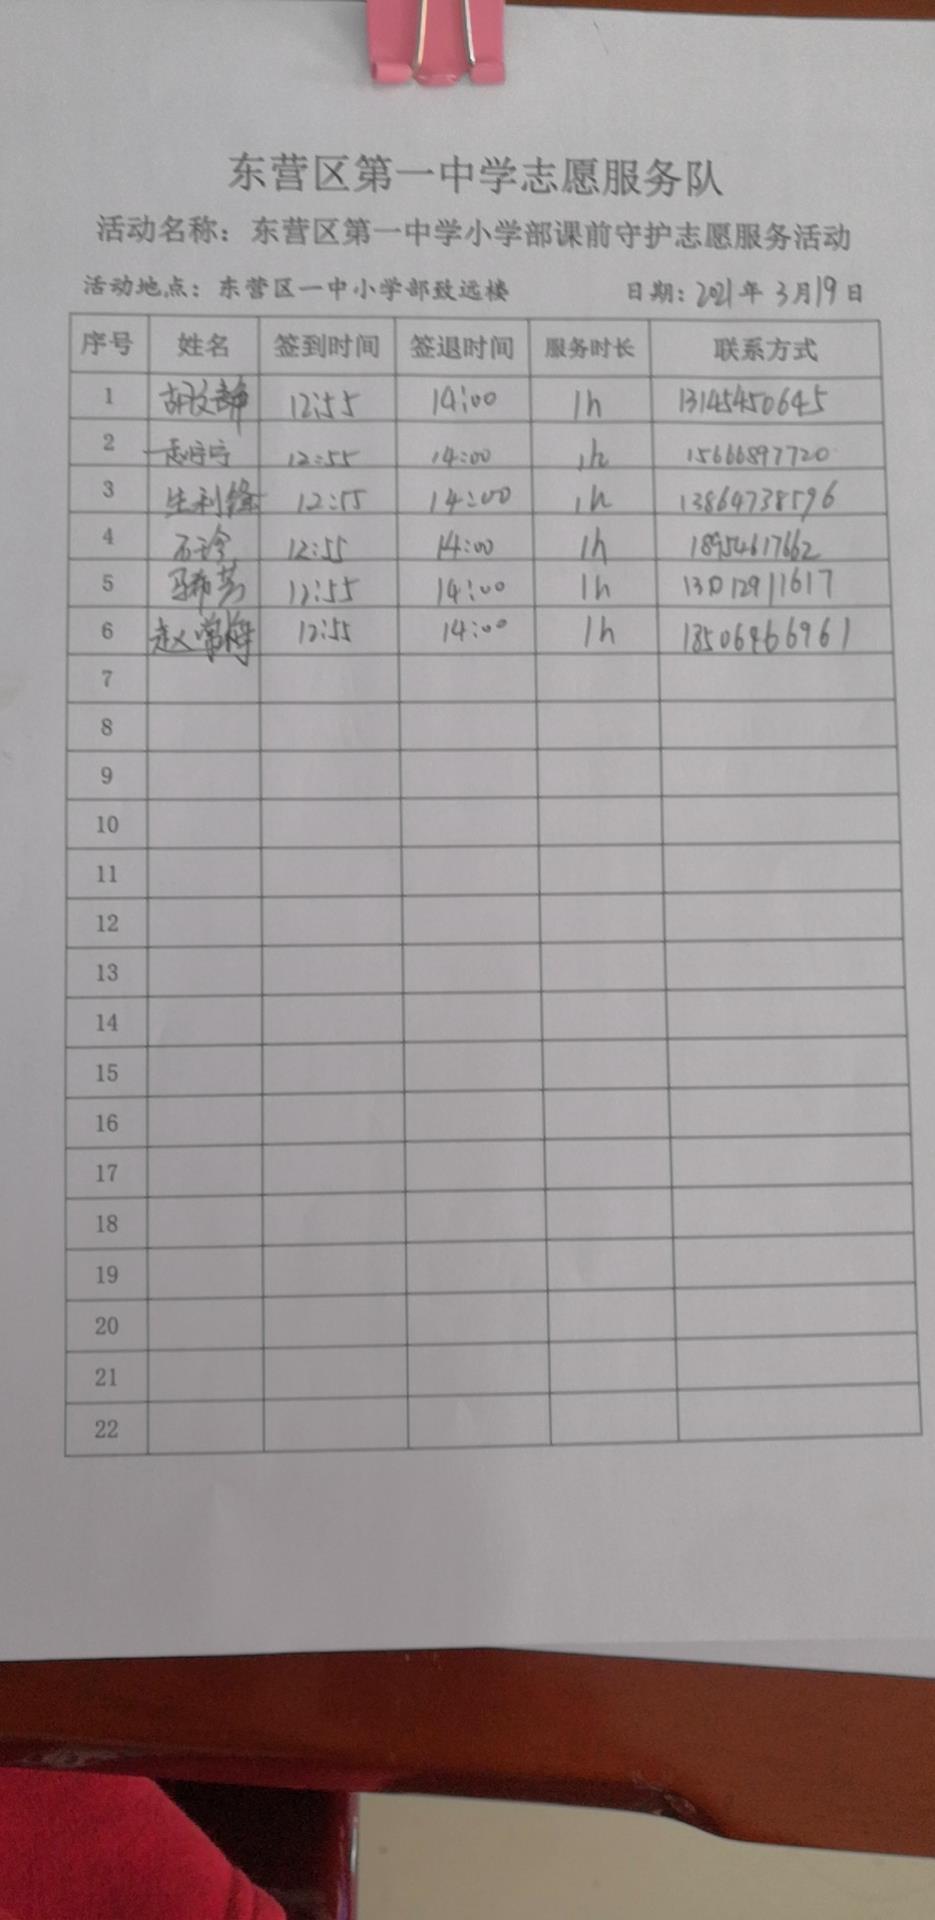 东营区第一中学志愿服务队
活动名称：东营区第一中学小学部课前守护志愿服务活动
活动地点：东营区一中小学部致远楼 日期：2021年 3月19日
序号 姓名 签到时间 签退时间 服务时长 联系方式
1 胡文静 12:55 14:00 1h 13145450645
2 赵宁宁 12:55 14:00 1h 15666897720
3 生利锋 12:55 14:00 1h 13864738596
4 石玲 12:55 14:00 1h 18954617662
5 12:55 14:00 1h
6 赵 12:55 14:00 1h
7
8
9
10
11
12
13
14
15
16
17
18
19
20
21
22